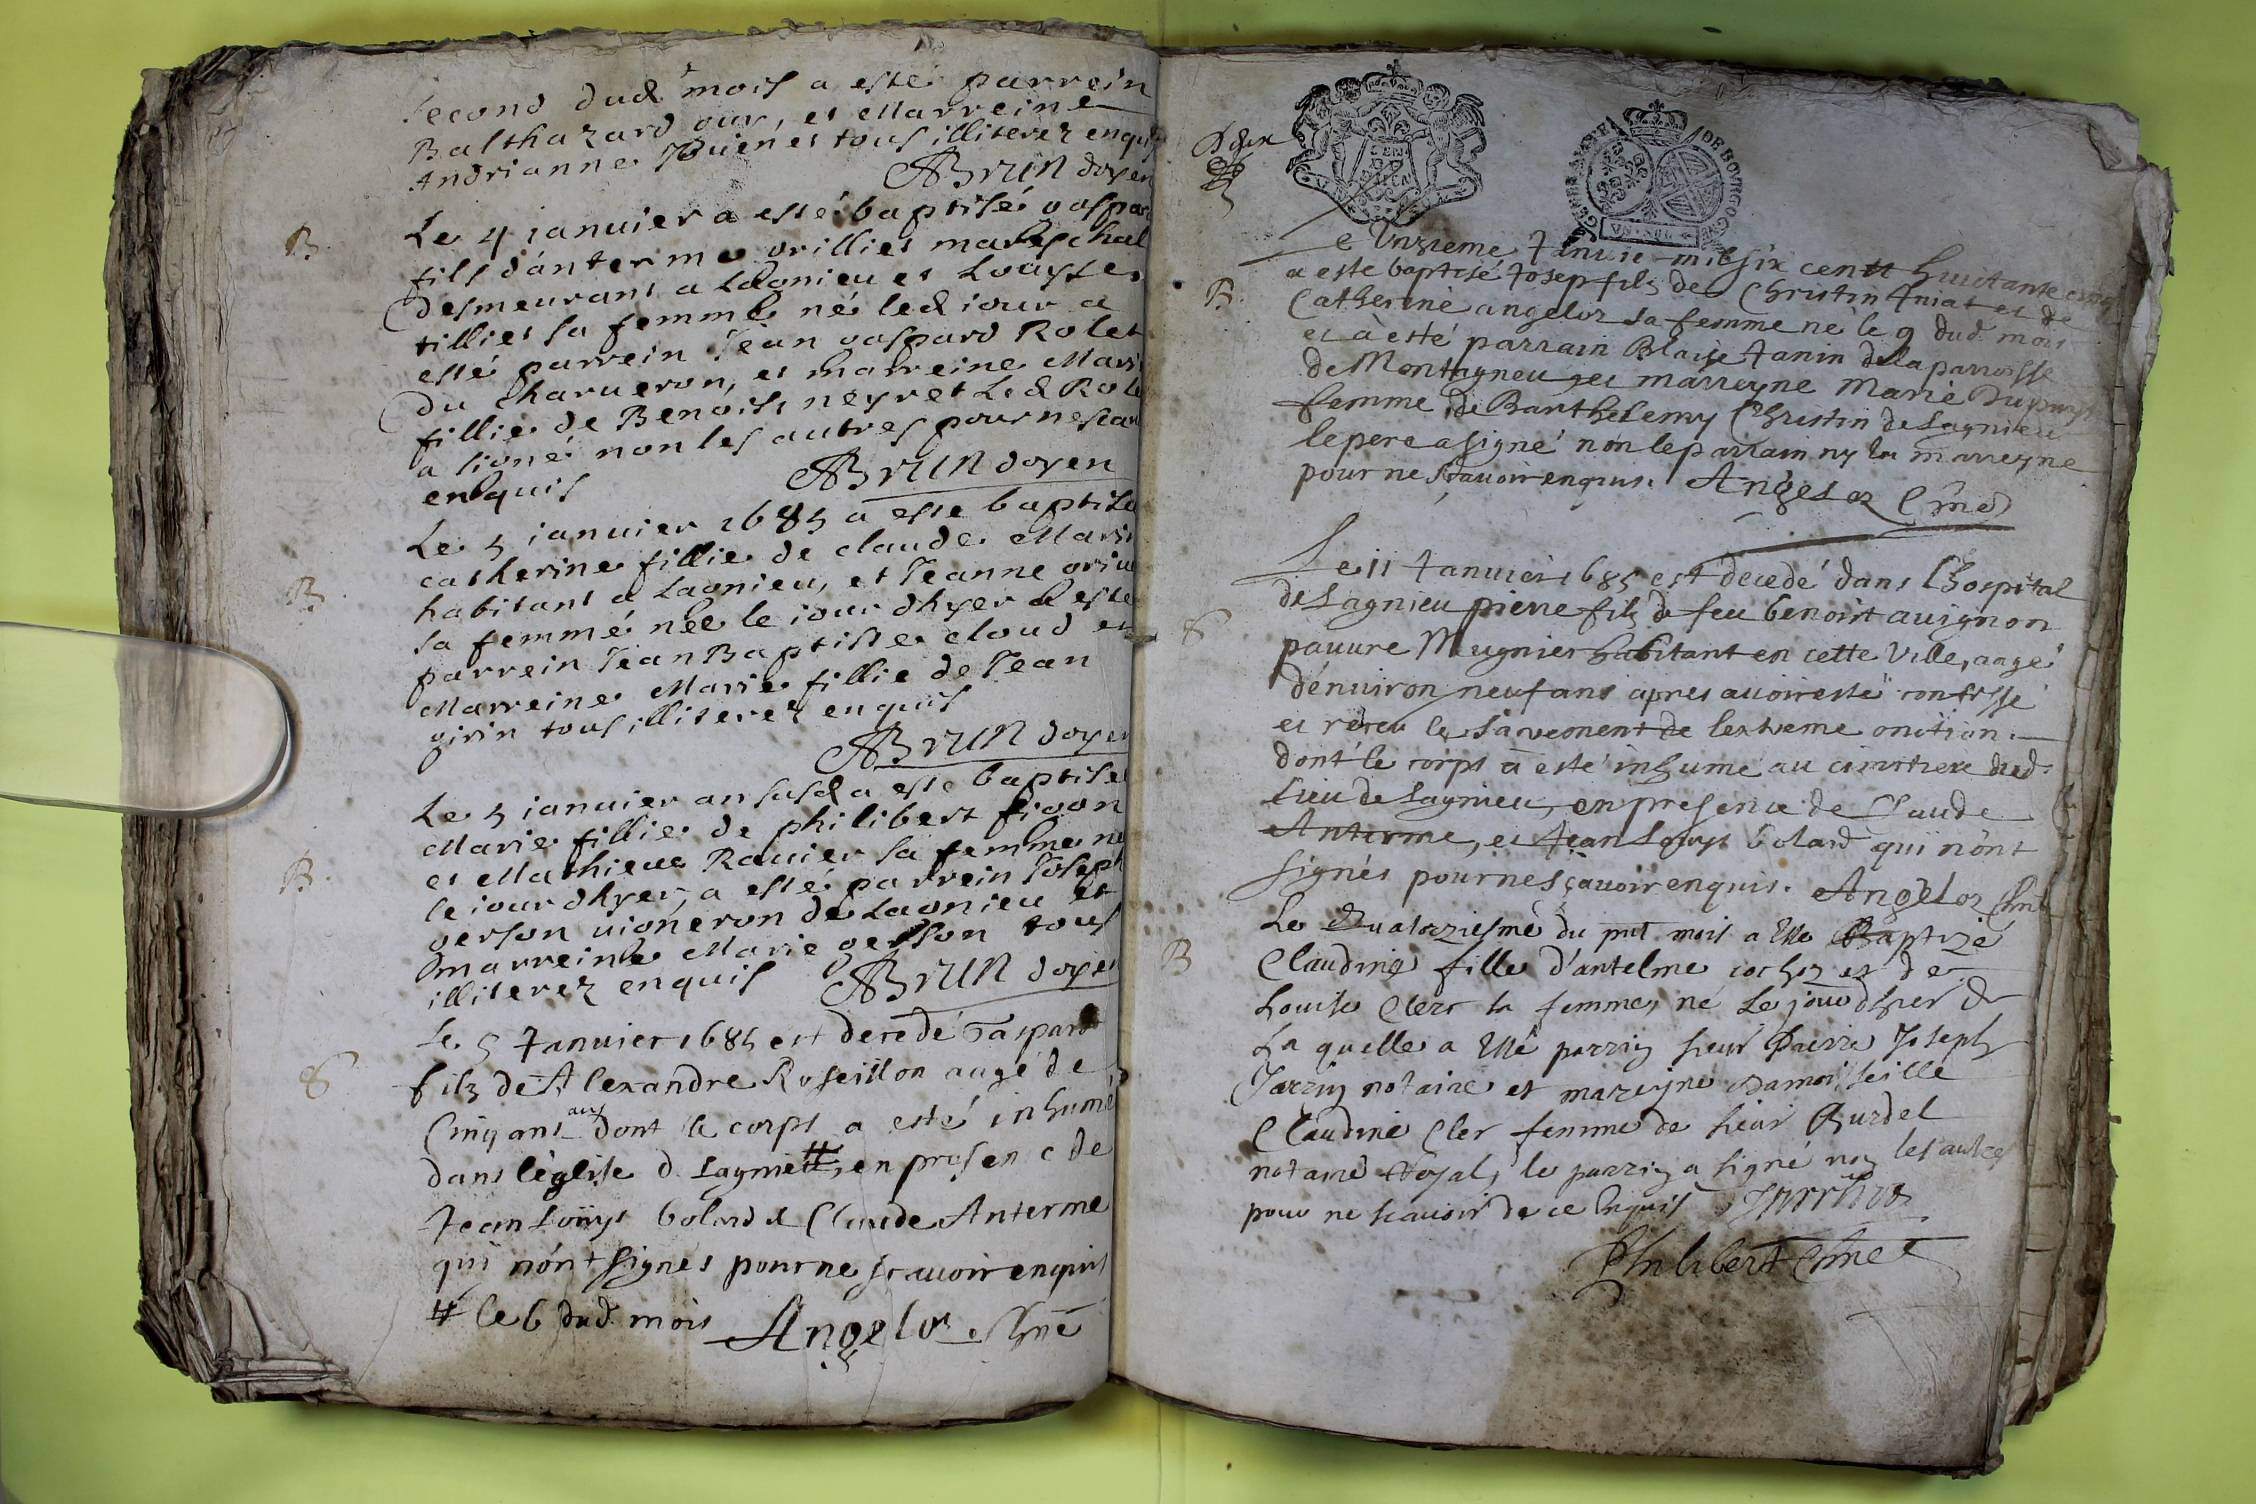 second dud mois a esté parrein
Balthazard ouir, et Marreine
Andrianne et tous illiterez enquis
ABrun doyen
B.
Le 4 ianuier a esté baptisé gaspard
fils dánterme grilliet mareschal
desmeurant a Lagnieu et Louyse
tilliet sa femme né led iour a
esté parrein Jean gaspard Rolet
du Charueron, et marreine Marie
fillie de Benoist neyret Led Rolet
a signé non les autres pour ne scau
enquis ABrun doyen
B.
Le 5 ianuier 1685 a esté baptisé
catherine fillie de claude Marin
habitant a Lagnieu, et Jeanne
sa femme née le iour dhyer a esté
parrein Jean Baptiste cloud et
Marreine Marie fillie de Jean
girin tous illiterez enquis
ABrun doyen
B.
Le 5 ianuier an susd a esté baptisé
Marie fillie de philibert figon
et Mathieue Rauier sa femme né
le iour dhyer, a esté parrein Joseph
gerson uigneron de Lagnieu et
marreine Marie gerson tous
illiterez enquis ABrun doyen
S
Le 5 Januier 1685 est decedé Gaspard
filz de Alexandre Roseillon augé de
Cinq ans dont le corps a esté inhumé
dans léglise d Lagnieu #, en presence de
Jean Loüys bolard & Claude Anterme
qui nónt signés pour ne scauoir enquis
# le 6 dud. mois Angelor
Deux
GEN
DE BOURGOGNE
B.
Le Unzieme Januie mil six centt huictante cinq
a este baptisé Josep filz de Christin Juiat et de
Catherine angelor sa femme né le 9 dud. mois
et à esté parrain Blaise Janin de la parroisse
de Montagneu et marreyne Marie Dupuys
femme de Barthelemy Christin de Lagnieu
le pere a signé nón le parrain ny la marreyne
pour ne scauoir enquis. Angelor
S
Le 11 Januier 1685 est decedé dans lhospital
de Lagnieu pierre filz de feu benoist auignon
pauure Mugnier habitant en cette Ville, aagé
dénuiron neuf ans apres auoir esté confessé
et receu le sacrement de lextreme onction.
dont le corps à esté inhumé au cimitiere dud.
Lieu de Lagnieu, en presence de Claude
Anterme, et Jean Louys bolard qui nónt
signés pour ne sçauoir enquis. Angelor
B
Le Quatorziesme du pnt mois a esté Baptizé
Claudine fille d'antelme cochoz et de
Louise Clerc sa femme, né Le jour dhier de
La quelle a esté parrin sieur Pierre Joseph
Jarrin notaire et mareyne Damoisseille
Claudine Cler femme de sieur Burdel
notaire Royal, le parrin a signé non les autres
pour ne scauoir de ce Enquis Jarrin
Philibert